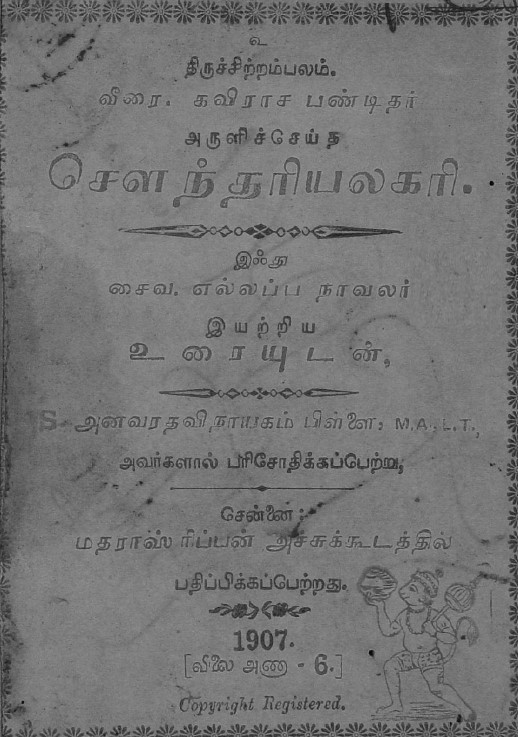 உ
திருச்சிற்றம்பலம்.
வீரை. கவிராச பண்டிதர்
அருளிச்செய்த
சௌந்தரியலகரி.
இஃது
சைவ. எல்லப்ப நாவலர்
இயற்றிய
உரையுடன்,
S. அனவரதவிநாயகம் பிள்ளை, M.A., L.T.,
அவர்களால் பரிசோதிக்கப்பெற்று,
சென்னை:
மதராஸ் ரிப்பன் அச்சுக்கூடத்தில்
பதிப்பிக்கப்பெற்றது.
1907.
[விலை அணா - 6.]
Copyright Registered.